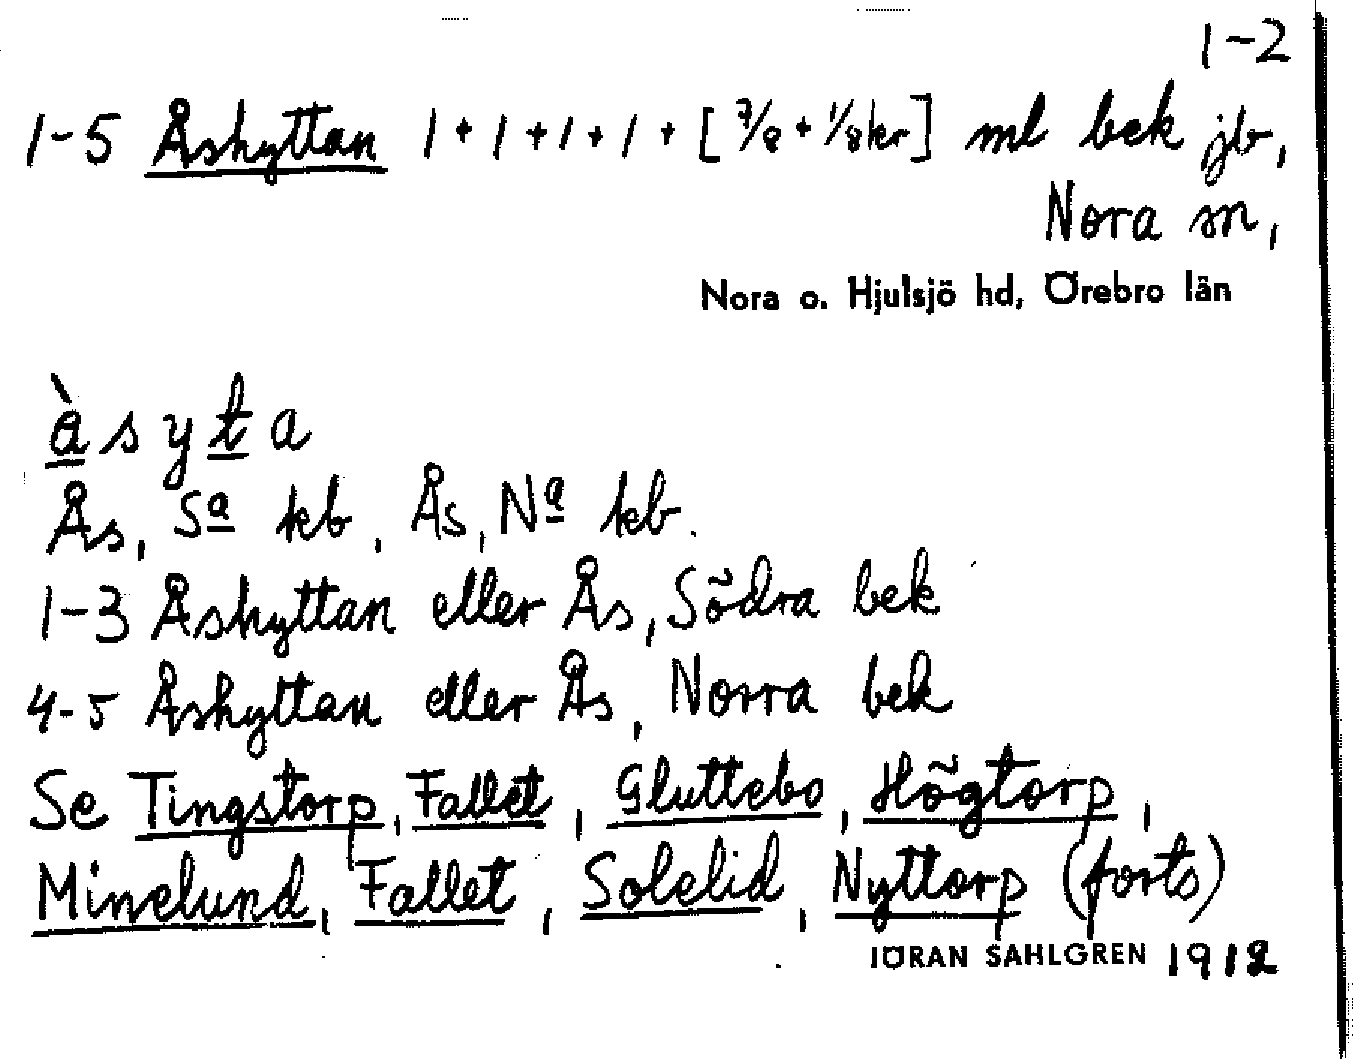 1-2
1-5 Åshyttan 1+1+1+1+[7/8+1/8kr] ml bek jb,
Nora sn,
Nora o. Hjulsjö hd, Örebro län
àsyta
Ås, Sa kb, Ås, Na kb.
1-3 Åshyttan eller Ås, Södra bek
4-5 Åshyttan eller Ås, Norra bek
Se Tingstorp, Fallet, Gluttebo, Högtorp,
Minelund, Fallet, Solelid, Nyttorp (forts)
JÖRAN SAHLGREN 1912